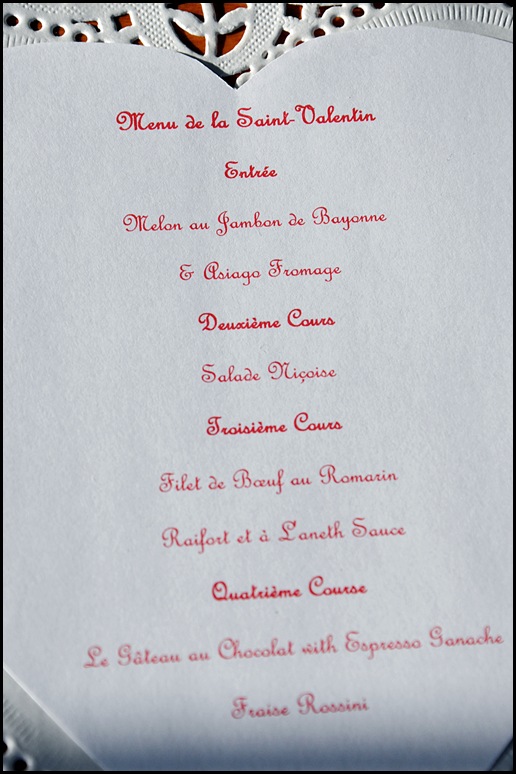 Menu de la Saint-Valentin
Entrée
Melon au Jambon de Bayonne
& Asiago Fromage
Deuxième Cours
Salade Niçoise
Troisième Cours
Filet de Bœuf au Romarin
Raifort et à L'aneth Sauce
Quatrième Course
Le Gâteau au Chocolat with Espresso Ganache
Fraise Rossini